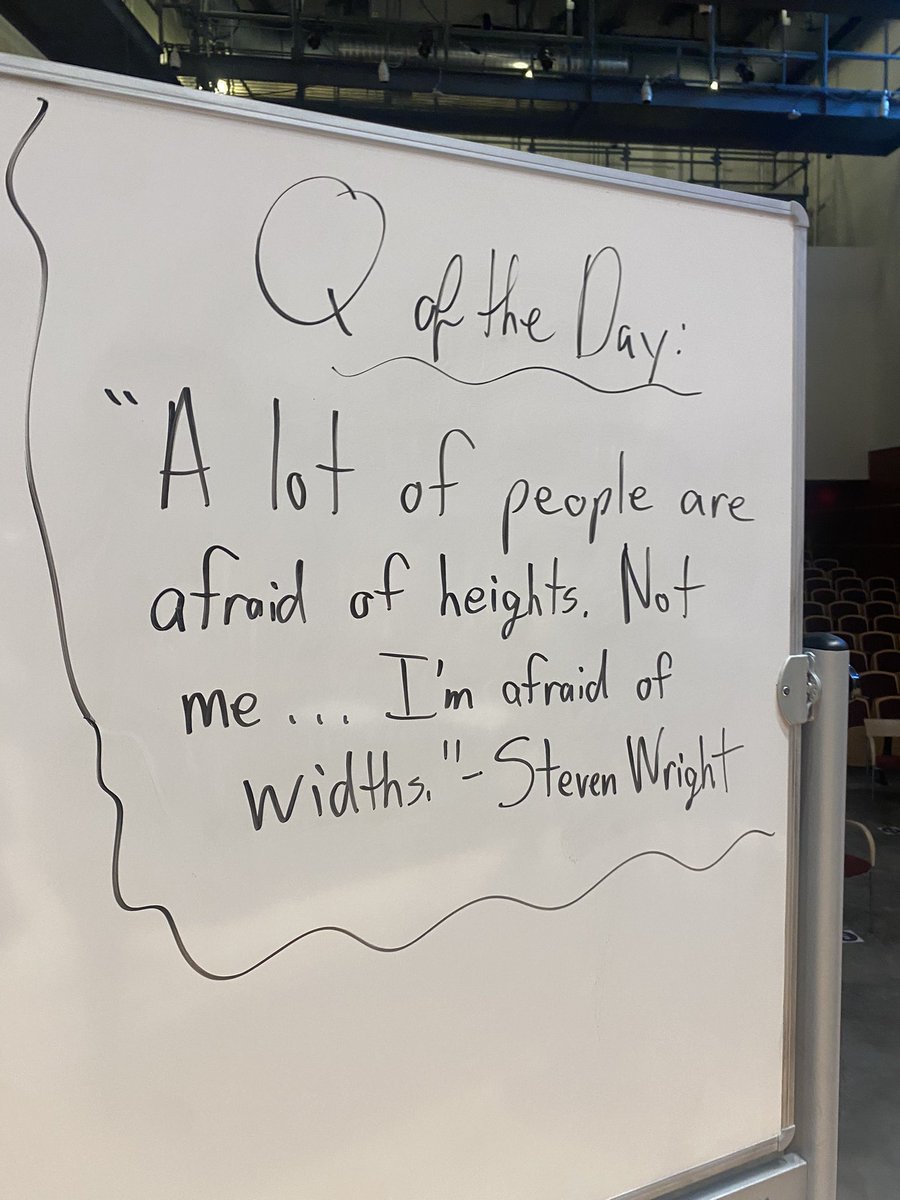 Q of the Day:
"A lot of people are
afraid of heights. Not
me ... I'm afraid of
widths." - Steven Wright